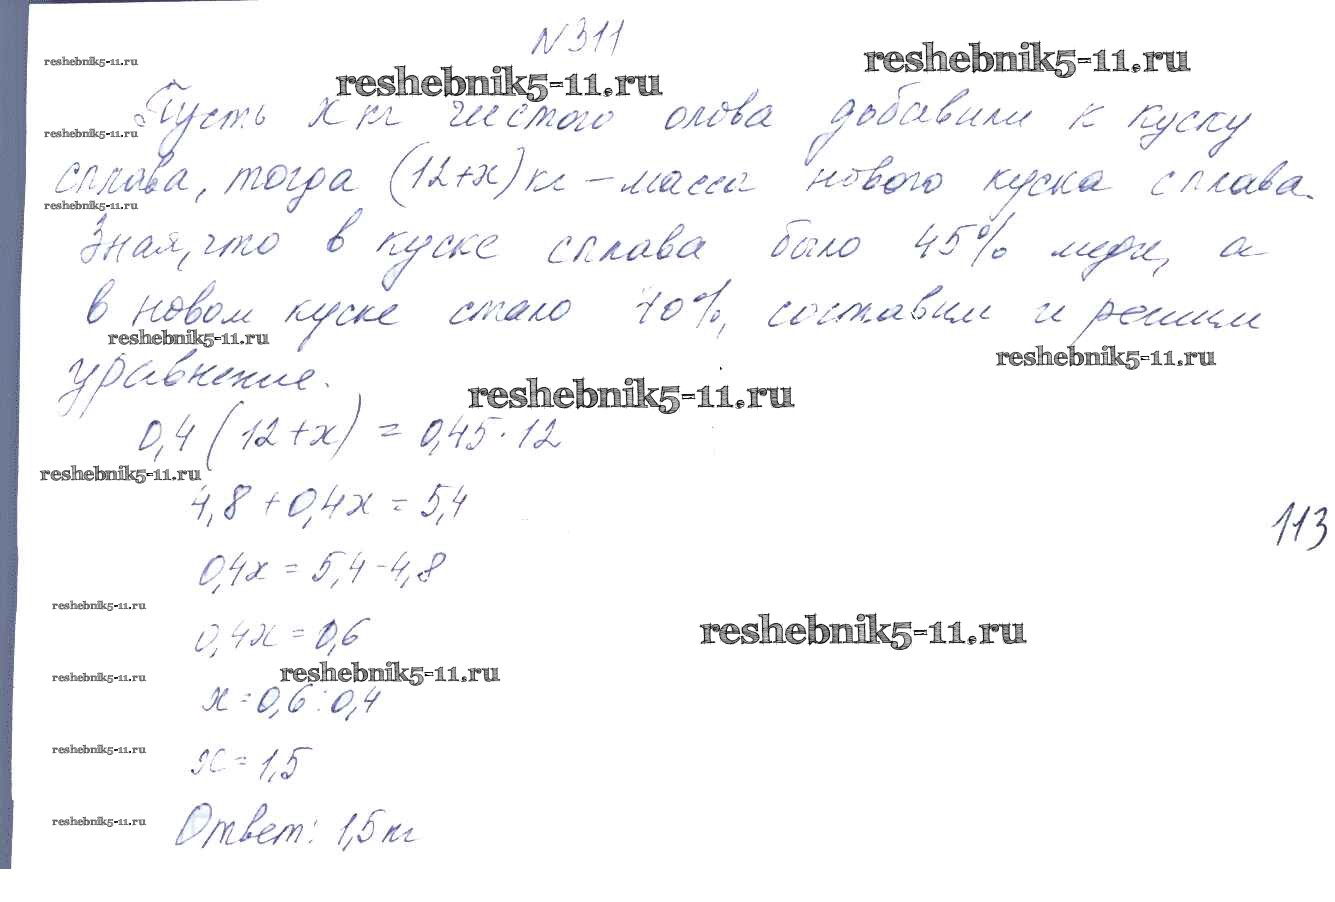 N 311
reshebnik5-11.ru
reshebnik5-11.ru
reshebnik5-11.ru
Пусть x кг чистого олова добавили к куску
reshebnik5-11.ru
сплава, тогда (12+x) кг – масса нового куска сплава.
reshebnik5-11.ru
Зная, что в куске сплава было 45% меди, а
в новом куске стало 40%, составим и решим
reshebnik5-11.ru
reshebnik5-11.ru
уравнение.
reshebnik5-11.ru
0,4 (12+x) = 0,45·12
reshebnik5-11.ru
4,8+0,4x = 5,4
113
0,4x = 5,4-4,8
reshebnik5-11.ru
0,4x = 0,6
reshebnik5-11.ru
reshebnik5-11.ru
reshebnik5-11.ru
x = 0,6:0,4
reshebnik5-11.ru
x = 1,5
reshebnik5-11.ru
Ответ: 1,5 кг